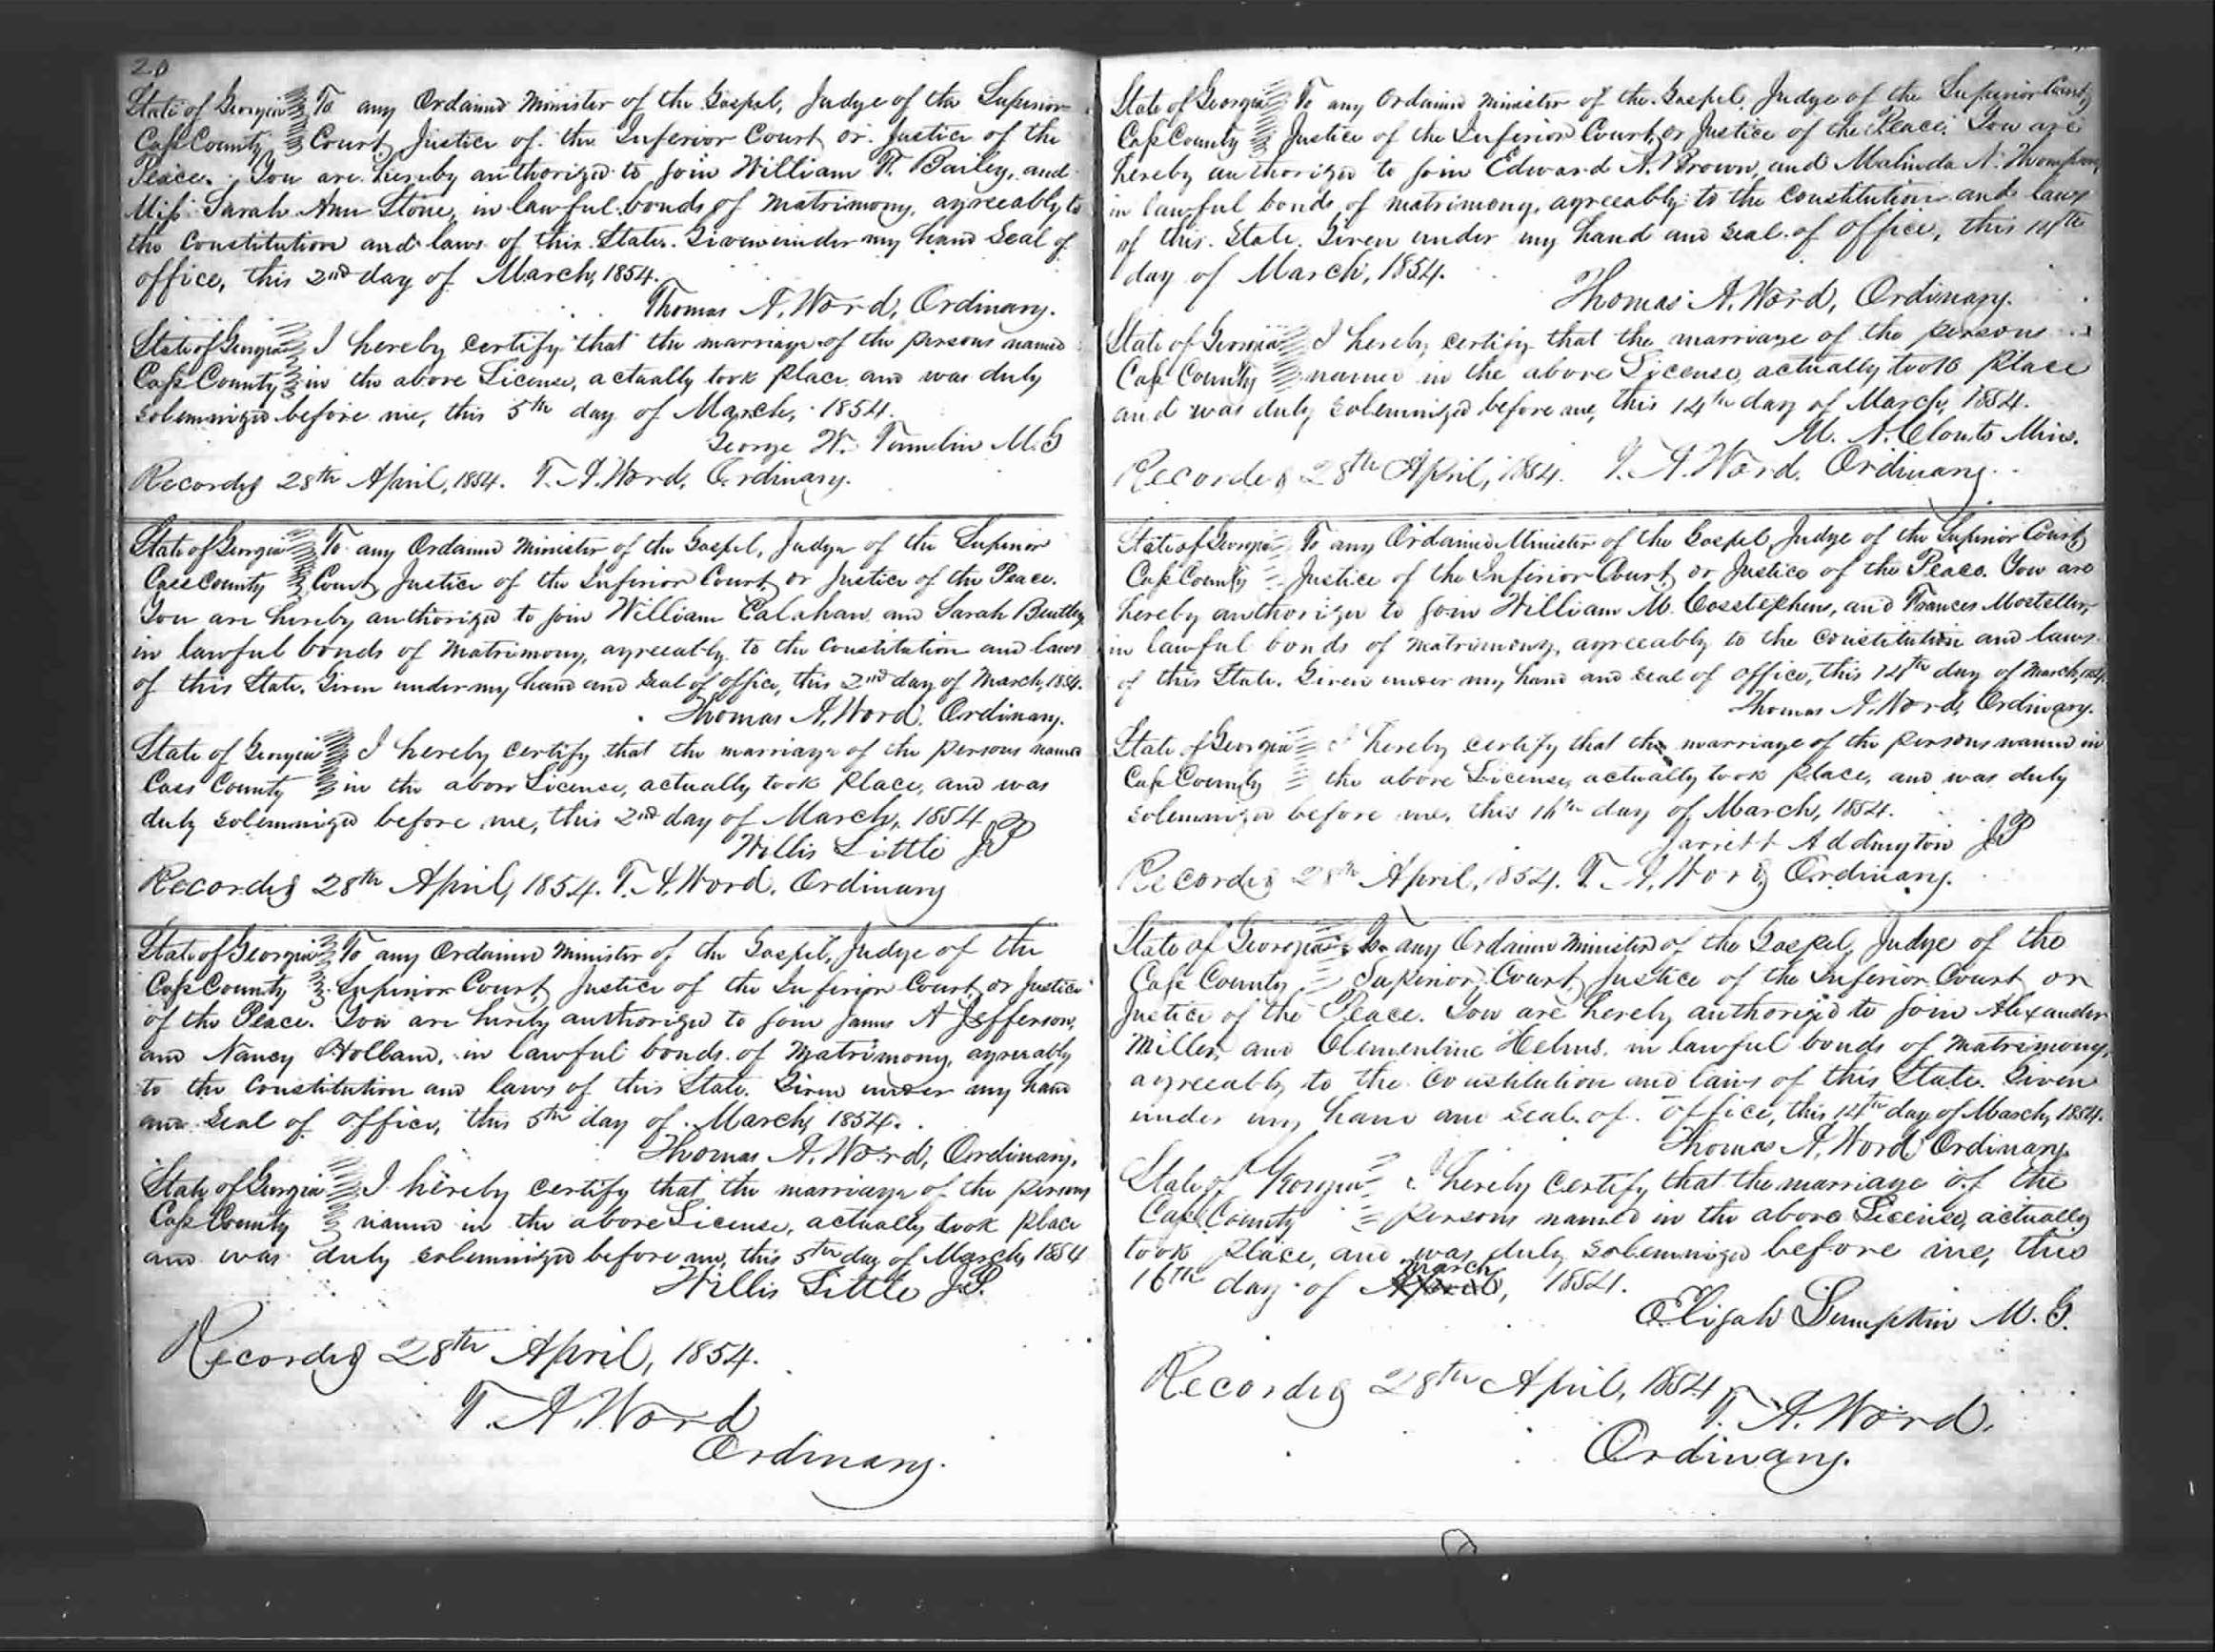 20
State of Georgia To any Ordained Minister of the Gospel, Judge of the Superior
Cass County Court, Justice of the Inferior Court or Justice of the
Peace. You are hereby authorized to join William T. Bailey, and
Miss Sarah Ann Stone, in lawful bonds of matrimony, agreeably to
the Constitution and laws of this State. Given under my hand Seal of
office, this 2nd day of March, 1854.
Thomas A. Word, Ordinary.
State of Georgia I hereby certify that the marriage of the persons named
Cass County in the above License, actually took place and was duly
solemnized before me, this 5th day of March, 1854.
George W. Tumlin M.G
Recorded 28th April, 1854. T. A. Word, Ordinary.
State of Georgia To any Ordained Minister of the Gospel, Judge of the Superior
Cass County Court, Justice of the Inferior Court, or Justice of the Peace.
You are hereby authorized to join William Calahan and Sarah Bentley
in lawful bonds of Matrimony, agreeably to the Constitution and laws
of this State. Given under my hand and Seal of office, this 2nd day of March, 1854.
Thomas A. Word. Ordinary.
State of Georgia I hereby certify that the marriage of the persons named
Cass County in the above License, actually took place, and was
duly solemnized before me, this 2nd day of March, 1854
Willis Little JP
Recorded 28th April, 1854. T. A. Word. Ordinary
State of Georgia To any Ordained Minister of the Gospel, Judge of the
Cass County Superior Court, Justice of the Inferior Court, or Justice
of the Peace. You are hereby authorized to join James A Jefferson,
and Nancy Holland, in lawful bonds of Matrimony, agreeably
to the Constitution and laws of this State. Given under my hand
and Seal of office, this 5th day of March, 1854.
Thomas A. Word, Ordinary.
State of Georgia I hereby certify that the marriage of the persons
Cass County named in the above License, actually took place
and was duly solemnized before me, this 5th day of March, 1854
Willis Little J.P.
Recorded 28th April, 1854.
T. A. Word
Ordinary.
State of Georgia To any Ordained Minister of the Gospel, Judge of the Superior Court,
Cass County Justice of the Inferior Court, or Justice of the Peace. You are
hereby authorized to join Edward A. Brown, and Malinda N. Thompson,
in lawful bonds of matrimony, agreeably to the Constitution and laws
of this State. Given under my hand and Seal of office, this 14th
day of March, 1854.
Thomas A. Word, Ordinary.
State of Georgia I hereby certify that the marriage of the persons
Cass County named in the above License, actually took place
and was duly solemnized before me, this 14th day of March, 1854.
M. A. Clouts Min.
Recorded 28th April, 1854. T. A. Word. Ordinary.
State of Georgia To any Ordained Minister of the Gospel, Judge of the Superior Court,
Cass County Justice of the Inferior Court, or Justice of the Peace. You are
hereby authorized to join William M. Costephens, and Frances Mosteller,
in lawful bonds of matrimony, agreeably to the Constitution and laws
of this State. Given under my hand and Seal of office, this 14th day of March, 1854.
Thomas A. Word, Ordinary.
State of Georgia I hereby certify that the marriage of the persons named in
Cass County the above License, actually took place, and was duly
solemnized before me, this 16th day of March, 1854.
Jarrett Addington JP
Recorded 28th April, 1854. T. A. Word Ordinary.
State of Georgia To any Ordained Minister of the Gospel, Judge of the
Cass County Superior Court, Justice of the Inferior Court or
Justice of the Peace. You are hereby authorized to join Alexander
Miller, and Clementine Helms. in lawful bonds of matrimony,
agreeably to the Constitution and laws of this State. Given
under my hand and Seal of office, this 14th day of March, 1854.
Thomas A. Word Ordinary
State of Georgia I hereby certify that the marriage of the
Cass County persons named in the above License, actually
took place, and was duly solemnized before me, this
16th day of April, March 1854.
Elijah Lumpkin M. G.
Recorded 28th April, 1854
T. A. Word.
Ordinary.